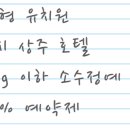 형 유치원
상주 호텔
g 이하 소수정예
% 예약제